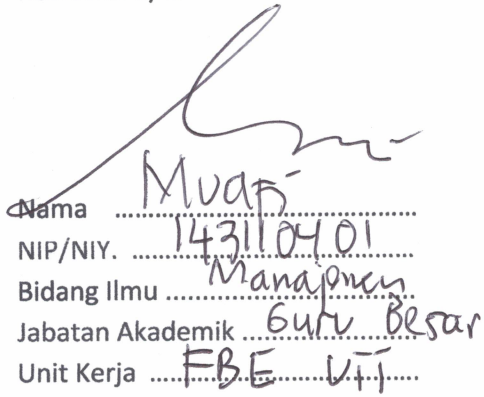 Nama ........ Muafi
NIP/NIY. ........ 143110401
Bidang Ilmu ........ Manajmen
Jabatan Akademik ........ Guru Besar
Unit Kerja ........ FBE UII